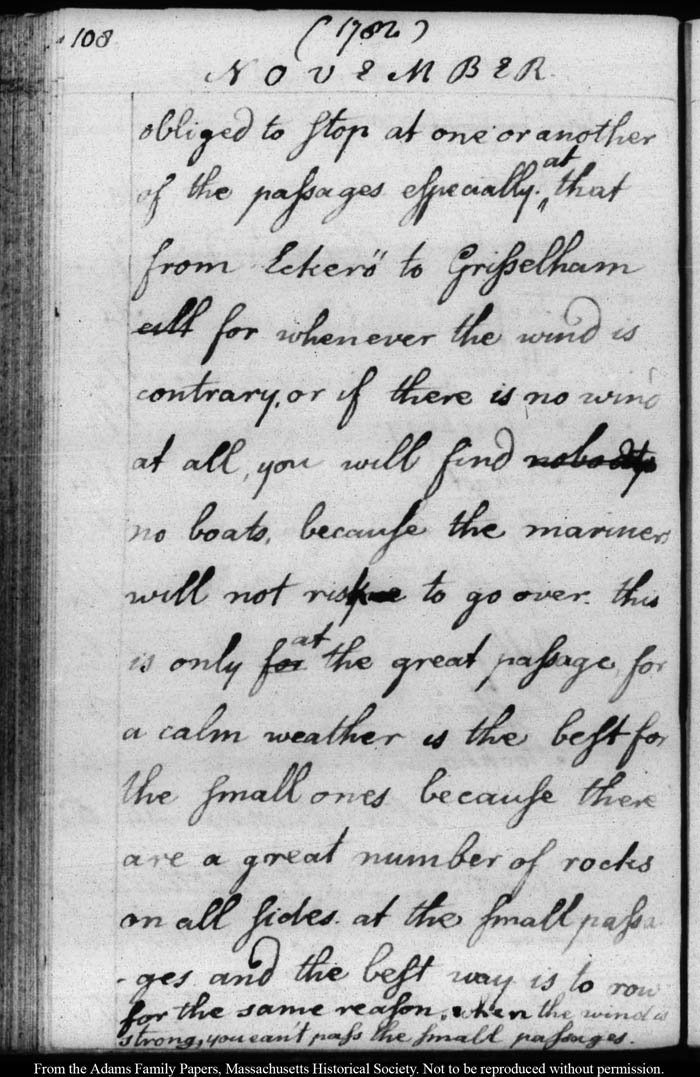 108
(1782)
NOVEMBER.
obliged to stop at one or another
of the passages especially. at that
from Eckerö to Grisselham
all for whenever the wind is
contrary, or if there is no wind
at all, you will find nobody
no boats, because the mariners
will not riske to go over. this
is only for at the great passage, for
a calm weather is the best for
the small ones because there
are a great number of rocks
on all sides. at the small passa
-ges and the best way is to row
for the same reason, when the wind is
strong, you can't pass the small passages.
From the Adams Family Papers, Massachusetts Historical Society. Not to be reproduced without permission.